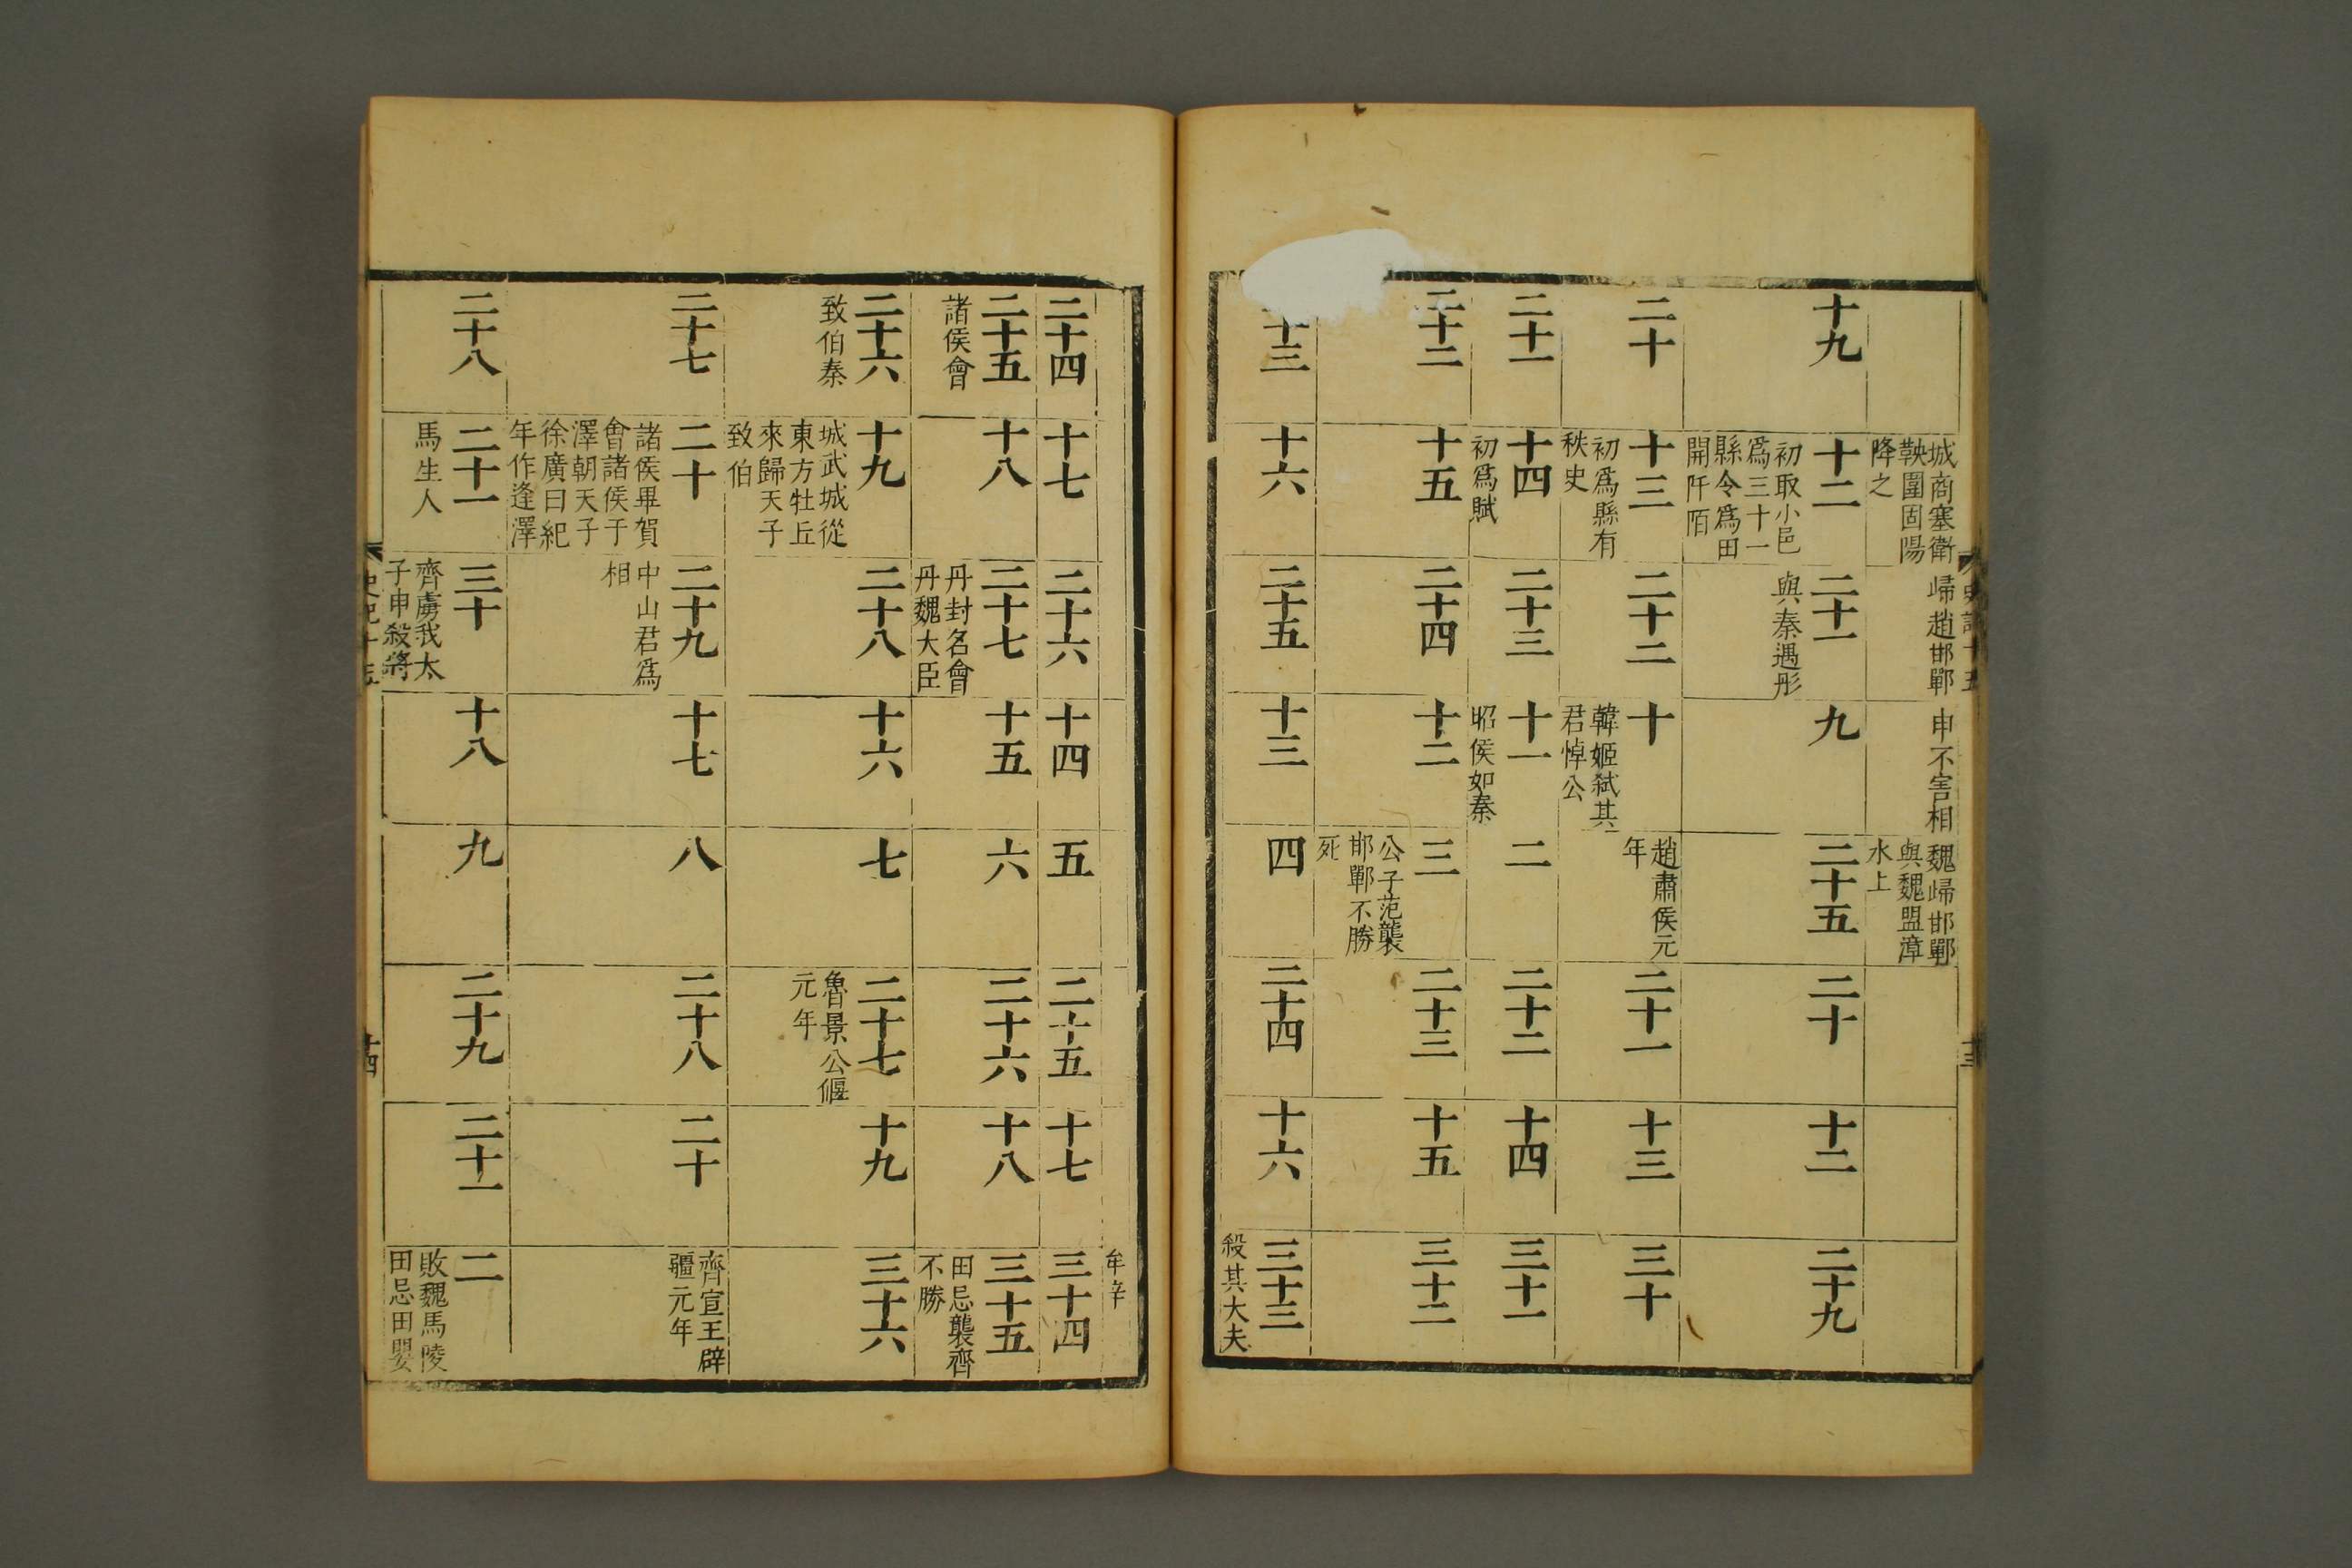 史記十五
十三
城商塞衛
鞅圍固陽
降之
歸趙邯鄲
申不害相
魏歸邯鄲
與魏盟漳
水上
十九
十二
初取小邑
爲三十一
縣令爲田
開阡陌
二十一
與秦遇彤
九
二十五
二十
十二
二十九
二十
十三
初爲縣有
秩史
二十二
十
韓姬弑其
君悼公
趙肅侯元
年
二十一
十三
三十
二十一
十四
初爲賦
二十三
十一
昭侯如秦
二
二十二
十四
三十一
二十二
十五
二十四
十二
三
公子范襲
邯鄲不勝
死
二十三
十五
三十二
十三
十六
二十五
十三
四
二十四
十六
三十三
殺其大夫
牟辛
二十四
十七
二十六
十四
五
二十五
十七
三十四
二十五
諸侯會
十八
二十七
丹封名會
丹魏大臣
十五
六
二十六
十八
三十五
田忌襲齊
不勝
二十六
致伯秦
十九
城武城從
東方牡丘
來歸天子
致伯
二十八
十六
七
二十七
魯景公偃
元年
十九
三十六
二十七
二十
諸侯畢賀
會諸侯于
澤朝天子
徐廣曰紀
年作逢澤
二十九
中山君爲
相
十七
八
二十八
二十
齊宣王辟
疆元年
二十八
二十一
馬生人
三十
齊虜我太
子申殺將
十八
九
二十九
二十一
二
敗魏馬陵
田忌田嬰
十四